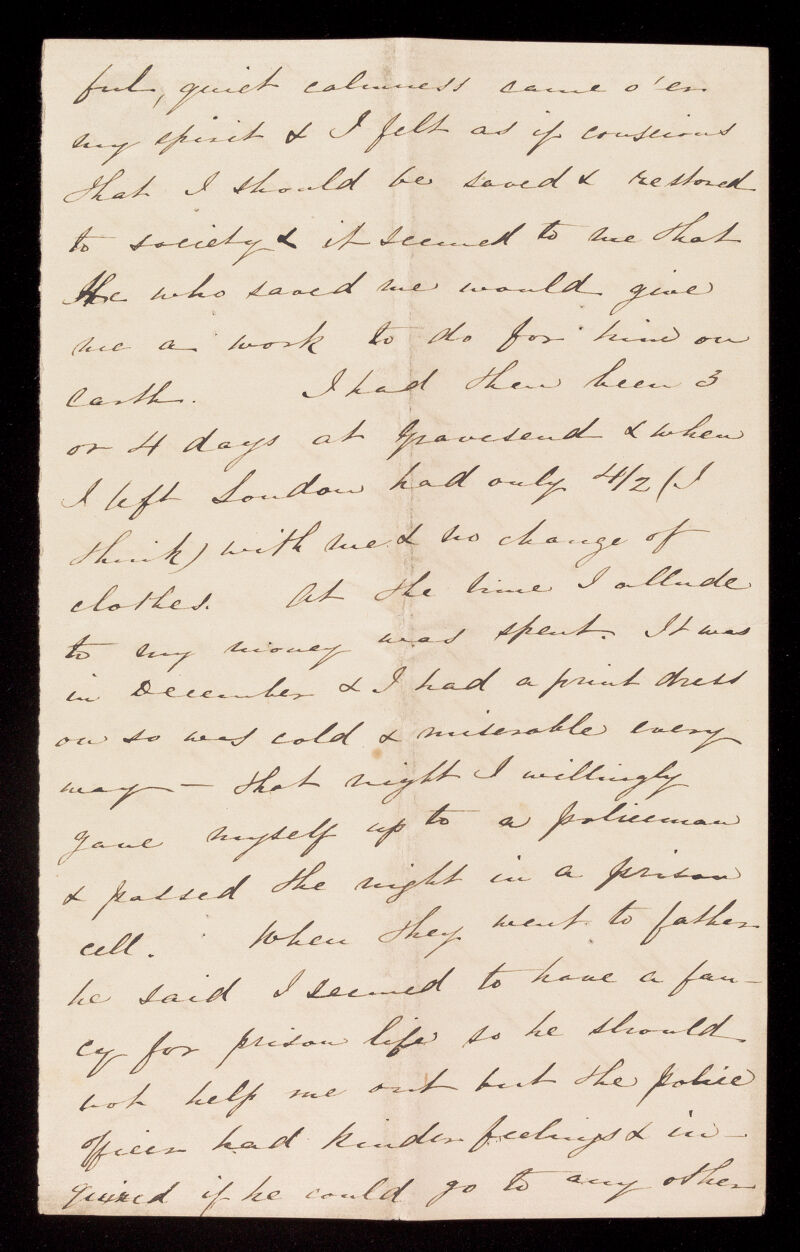 ful, quiet calmness came o'er
my spirit & I felt as if conscious
that I should be saved & restored
to society & it seemed to me that
He who saved me would give
me a work to do for him on
earth. I had then been 3
or 4 days at Gravesend & when
I left London had only 4/2 (I
think) with me & no change of
clothes. At the time I allude
to my money was spent. It was
in December & I had a print dress
on so was cold & miserable every
way — that night I willingly
gave myself up to a policeman
& passed the night in a prison
cell. When they went to father
he said I seemed to have a fan-
cy for prison life so he should
not help me out but the police
officer had kinder feelings & in-
quired if he could go to any other